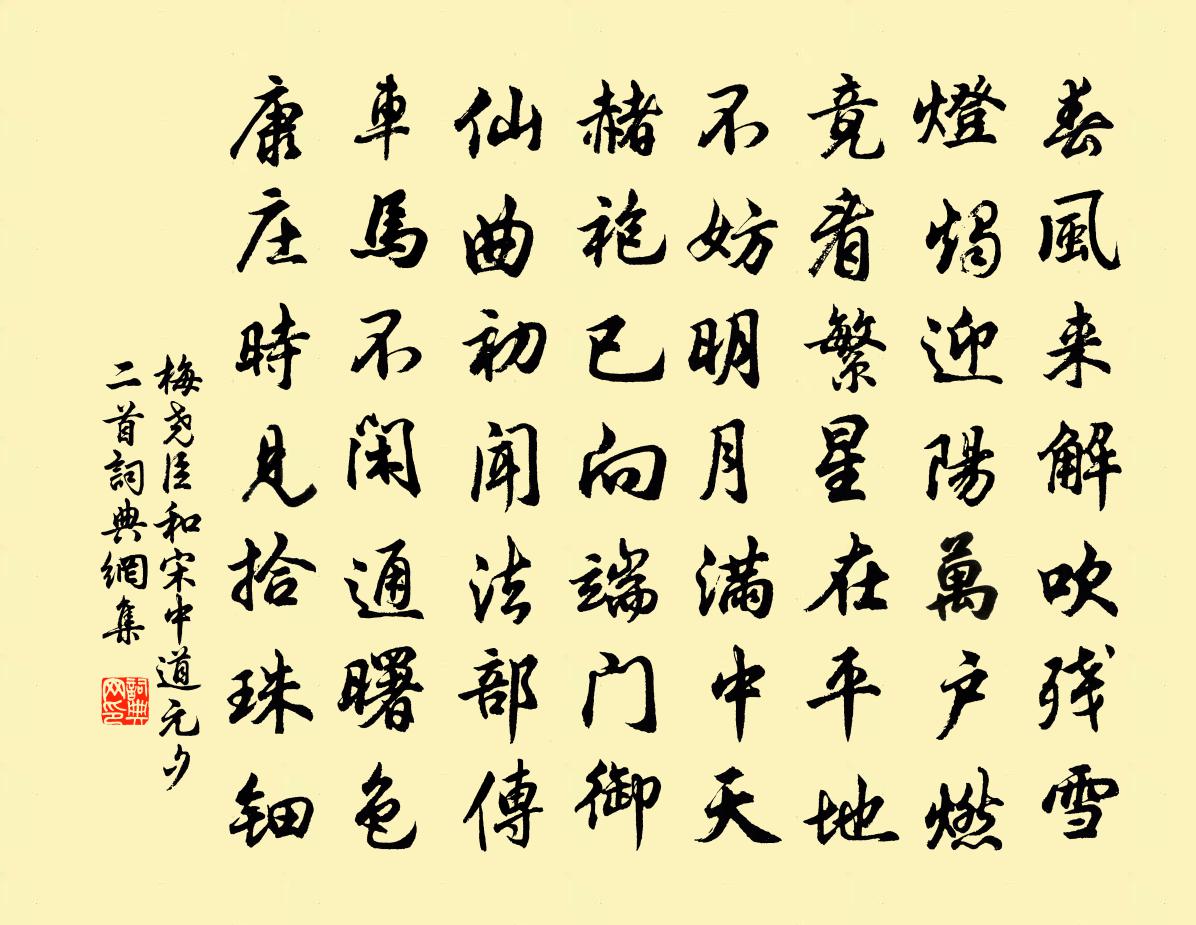 春風来解吹残雪
燈燭迎陽萬户燃
竟看繁星在平地
不妨明月满中天
赭袍已向端门御
仙曲初闻法部傳
車馬不闲通曙色
康庄時見拾珠钿
梅尧臣和宋中道元夕
二首詞典網集
詞典网印